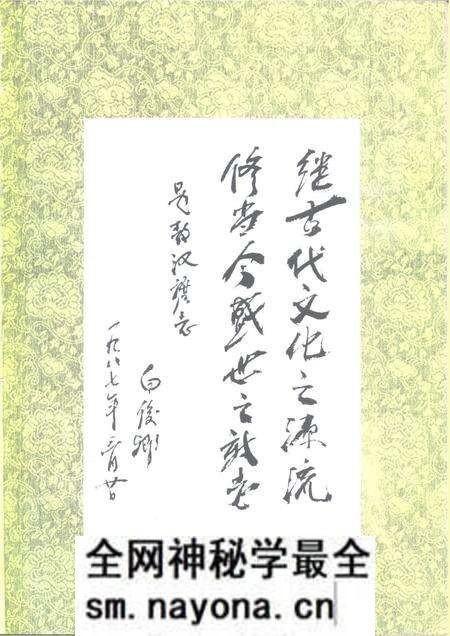 继古代文化之源流
修当今盛世之新志
题敖汉旗志
白俊卿
一九八七年三月廿
全网神秘学最全
sm.nayona.cn